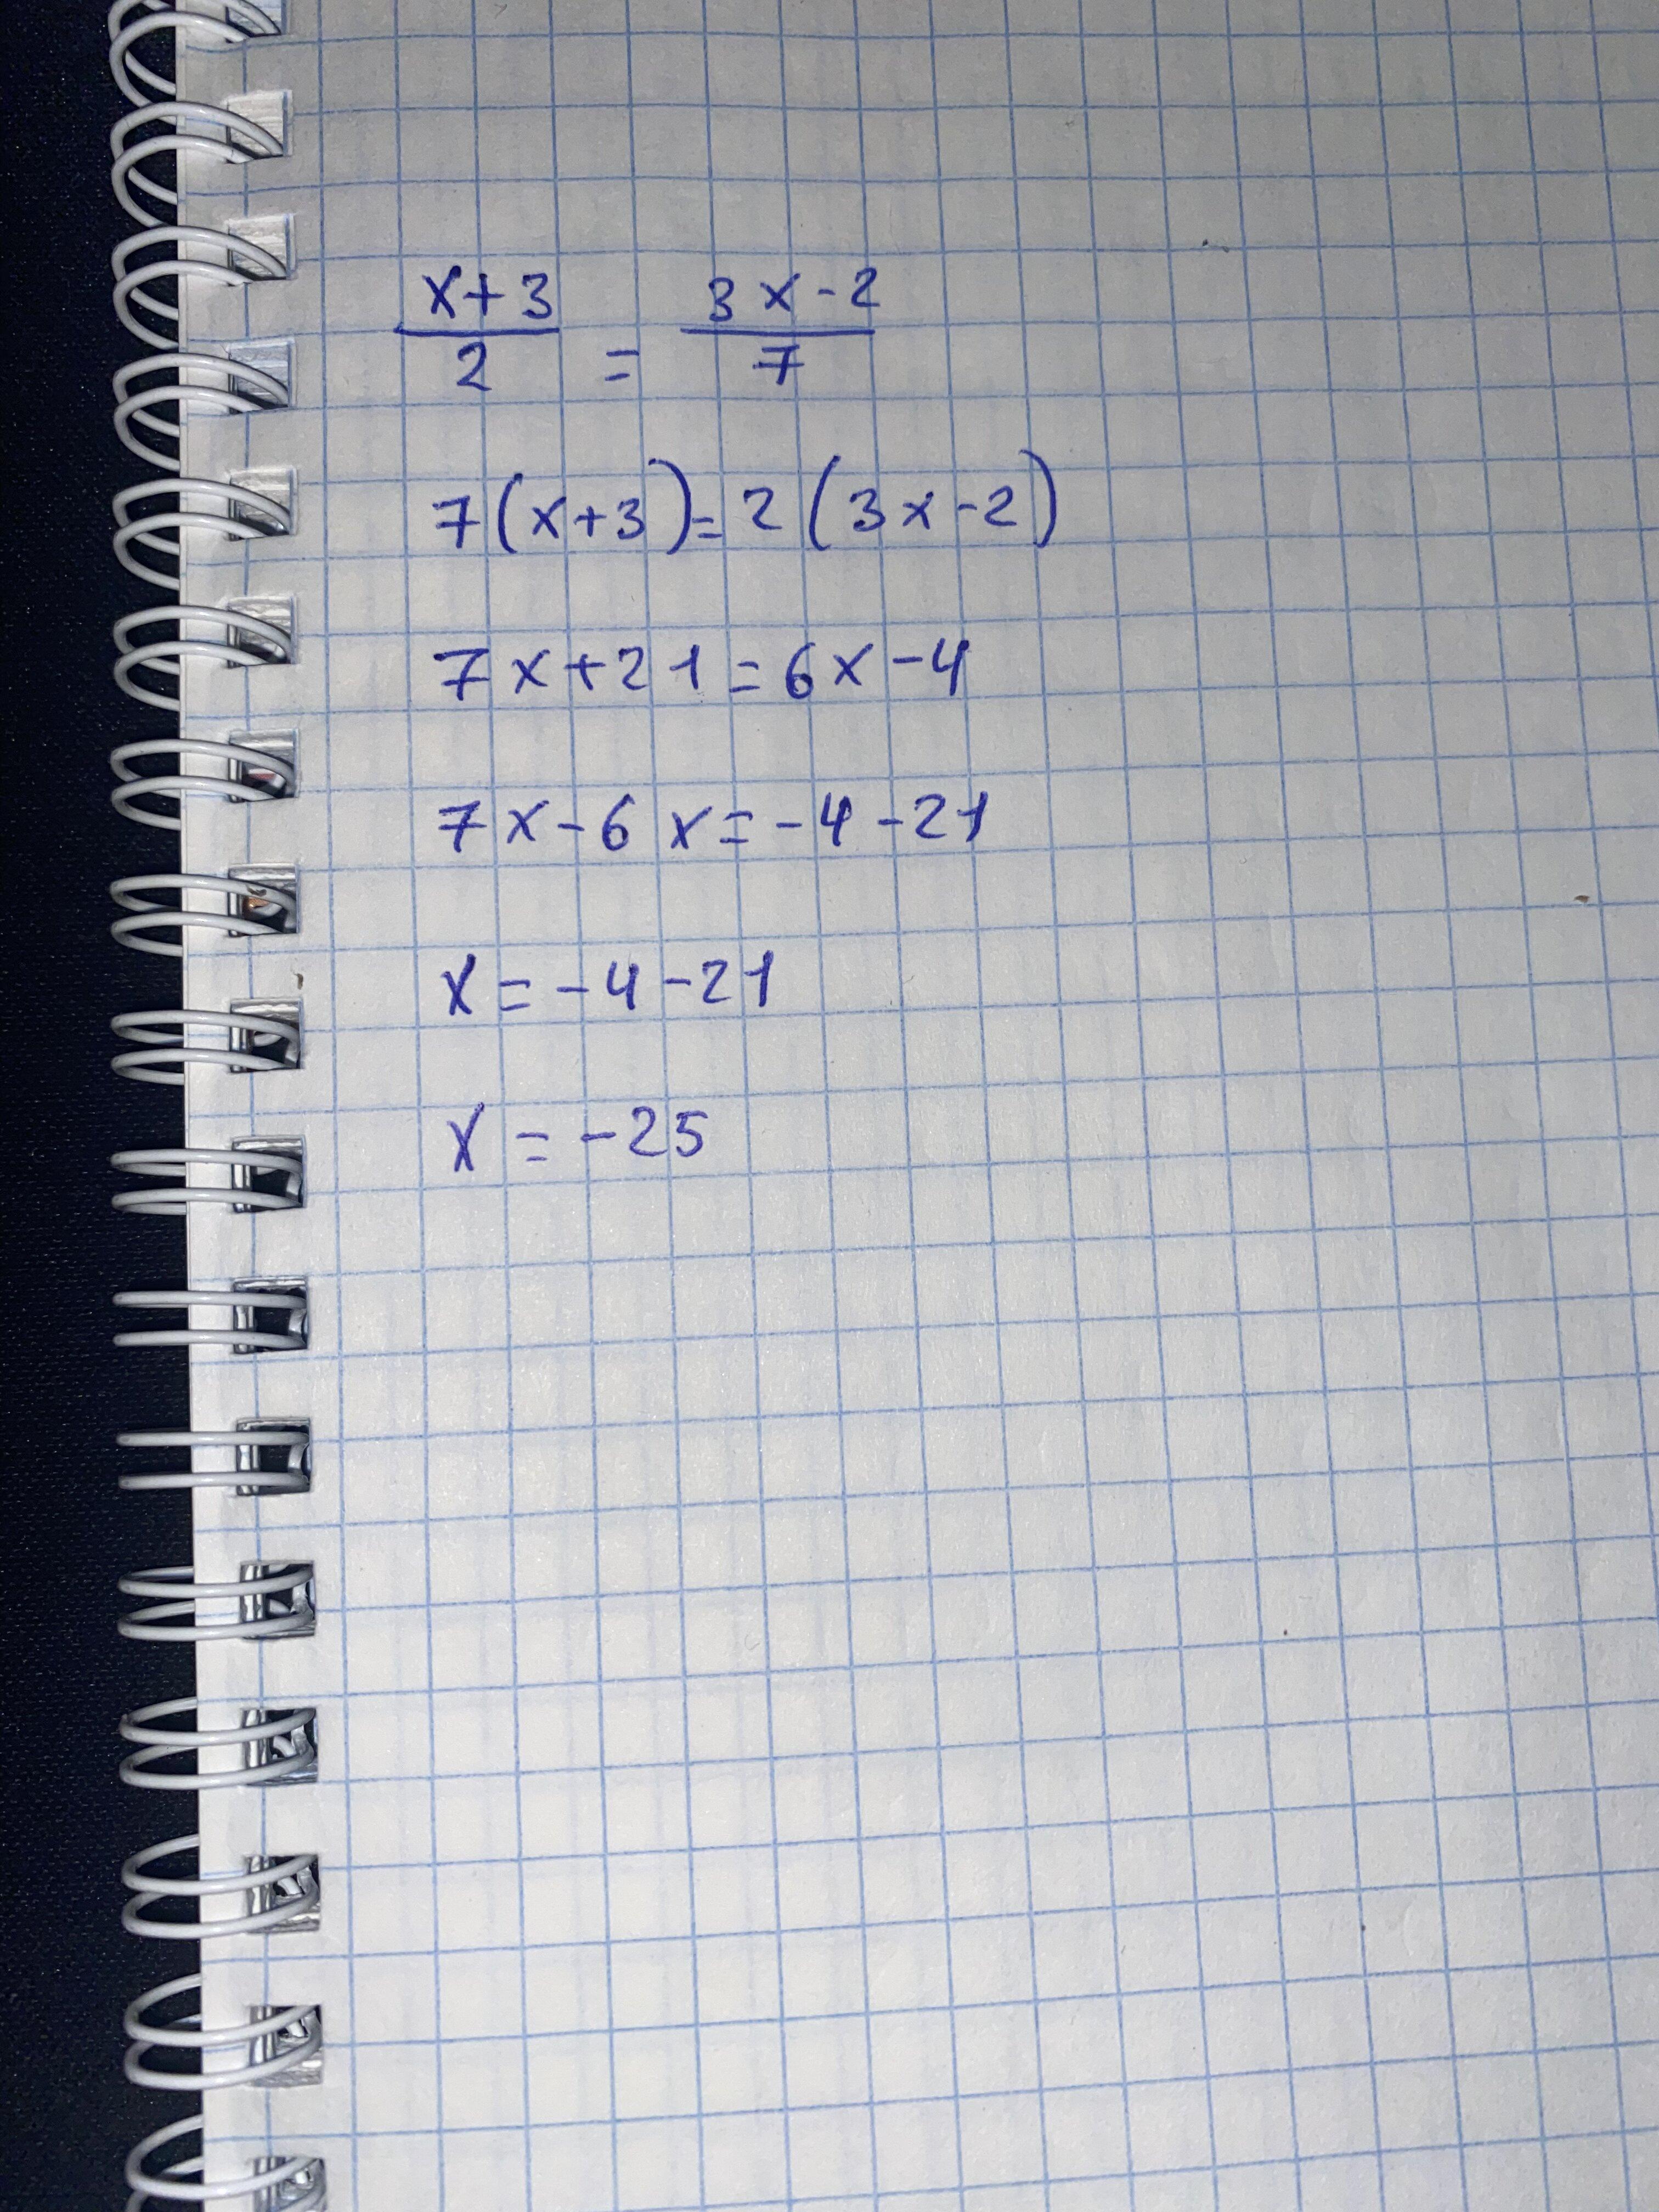 x+3/2 = 3x-2/7
7(x+3)=2(3x-2)
7x+21=6x-4
7x-6x=-4-21
x=-4-21
x=-25